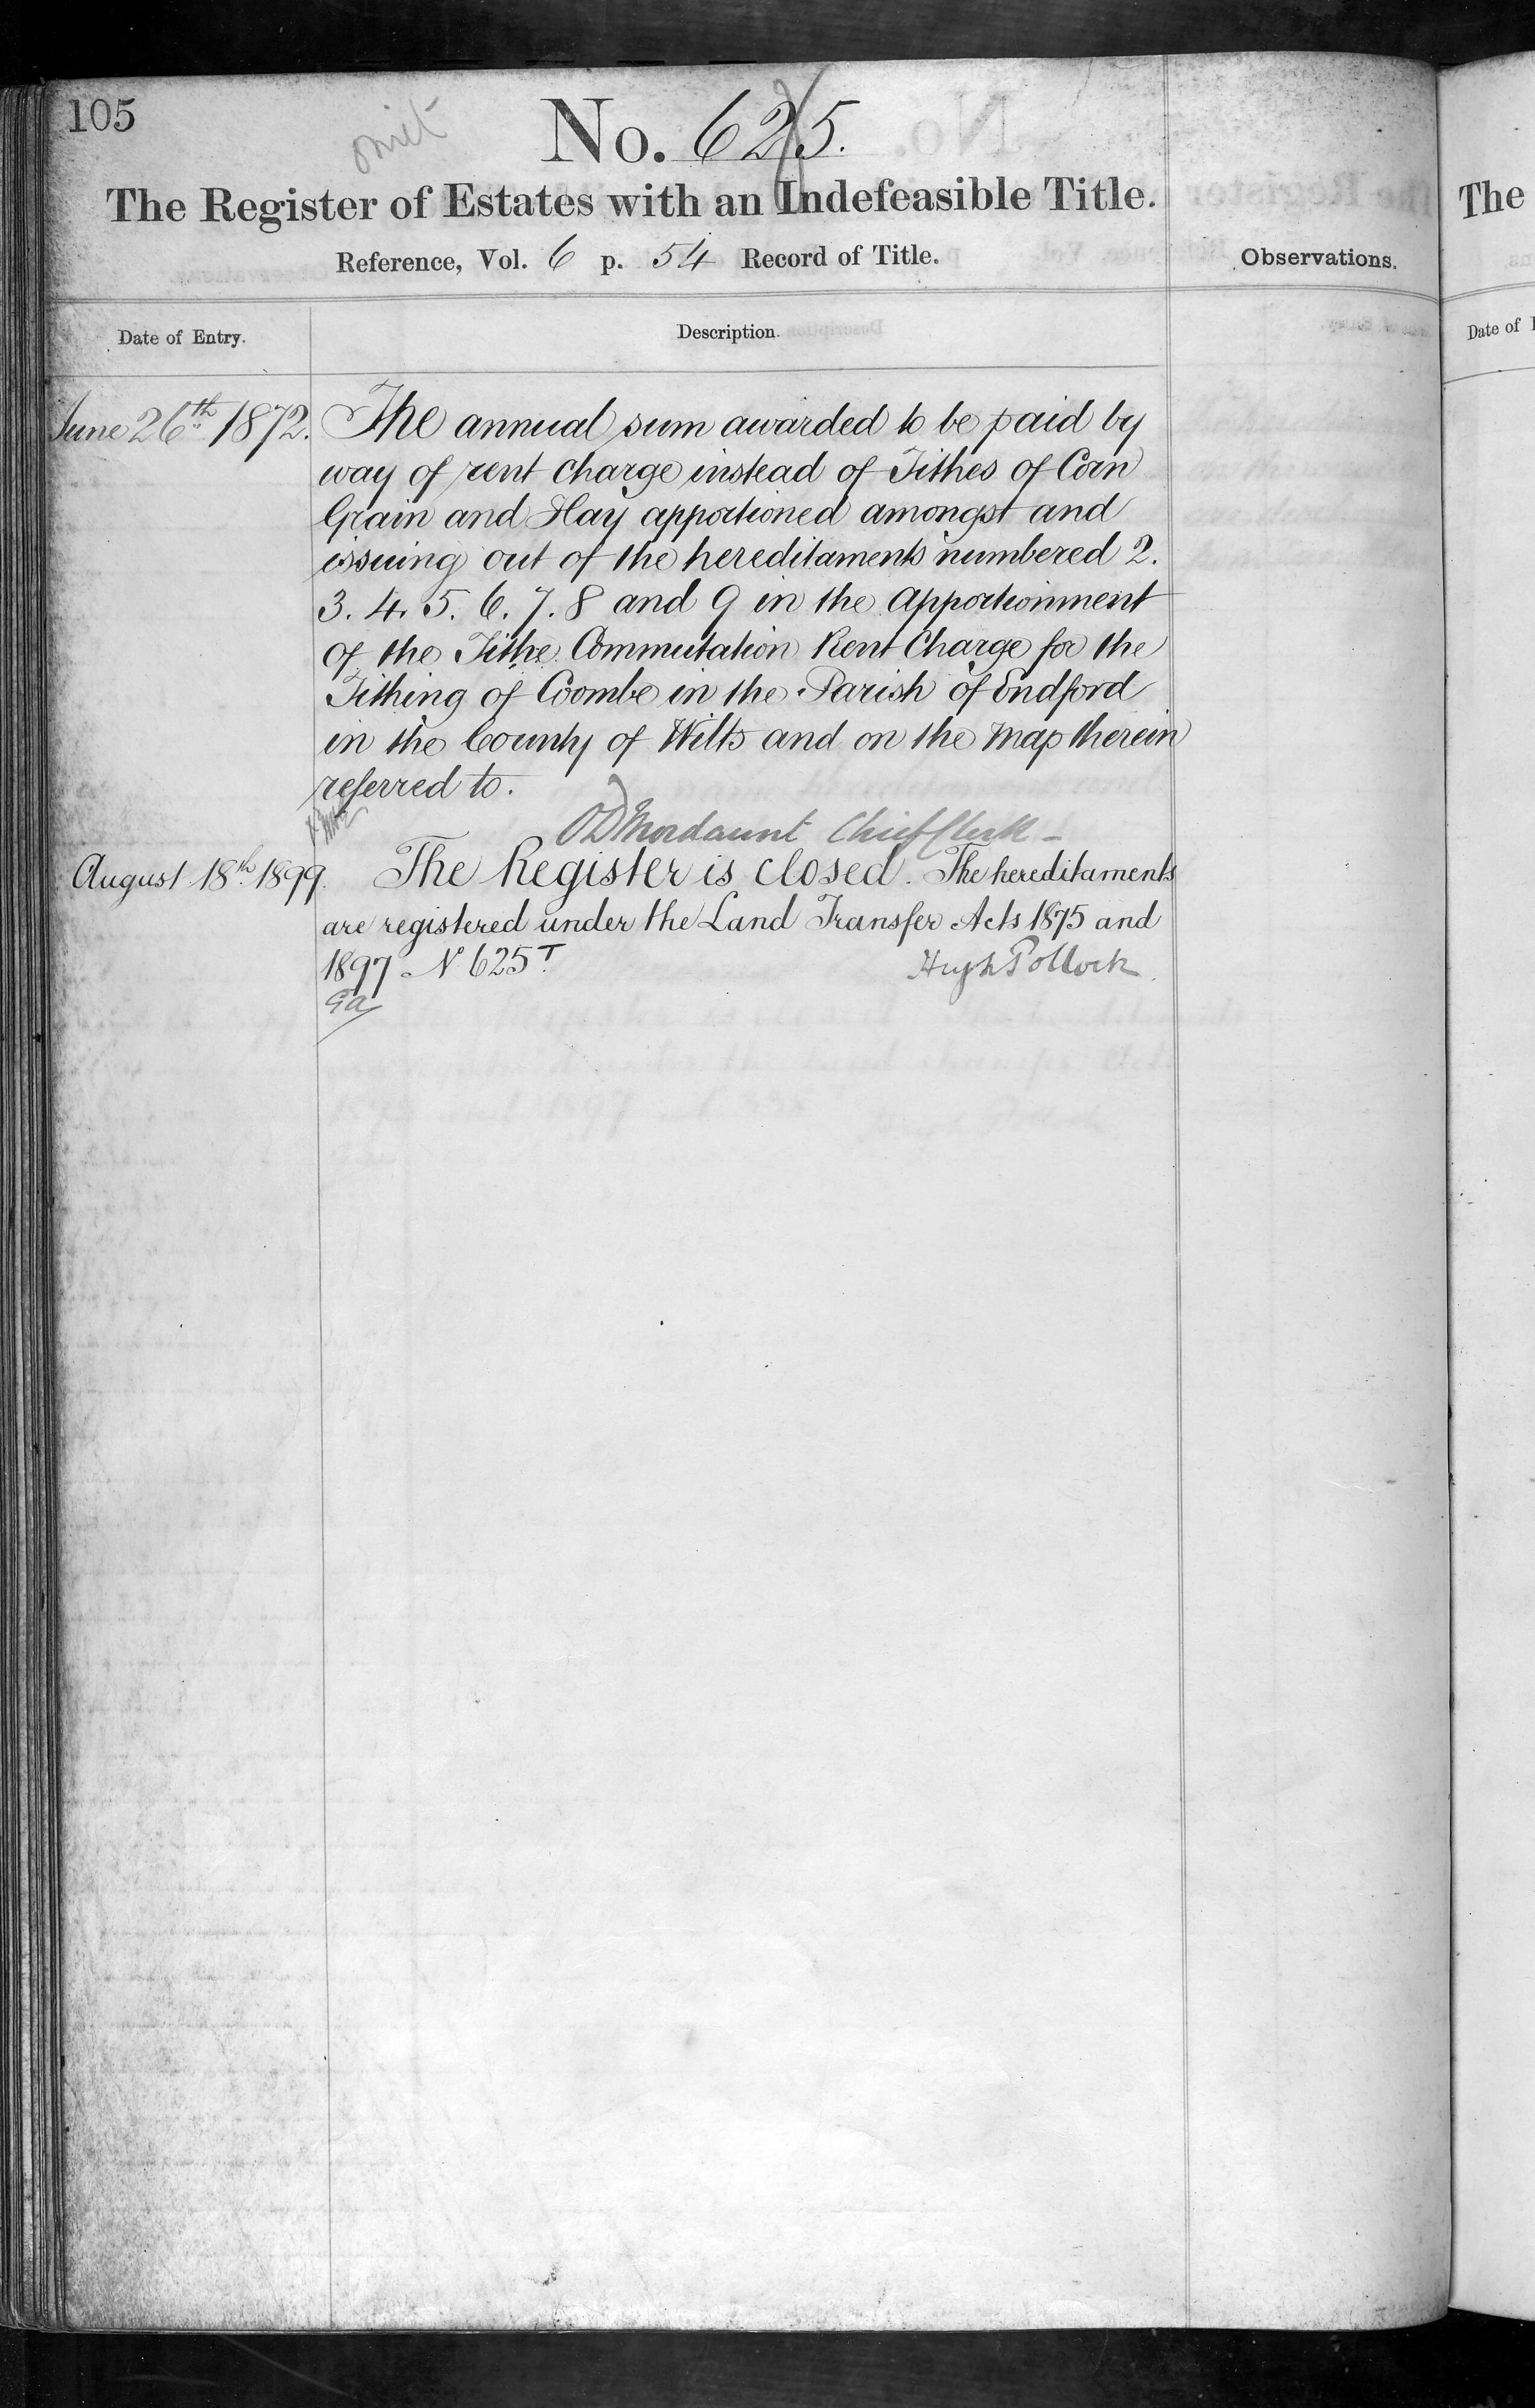 105
omit
No. 625.
The Register of Estates with an Indefeasible Title.
Reference, Vol. 6 p. 54 Record of Title.
Observations.
Date of Entry.
Description.
June 26th 1872.
The annual sum awarded to be paid by
way of rent charge instead of Tithes of Corn
Grain and Hay apportioned amongst and
issuing out of the hereditaments numbered 2.
3. 4. 5. 6. 7. 8 and 9 in the Apportionment
of the Tithe Commutation Rent Charge for the
Tithing of Coombe in the Parish of Endford
in the County of Wilts and on the Map therein
referred to.
Mordaunt Chief Clerk -
August 18th 1899.
The Register is closed. The hereditaments
are registered under the Land Transfer Acts 1875 and
1897 No 625T.
Hugh Pollock
The
Date of